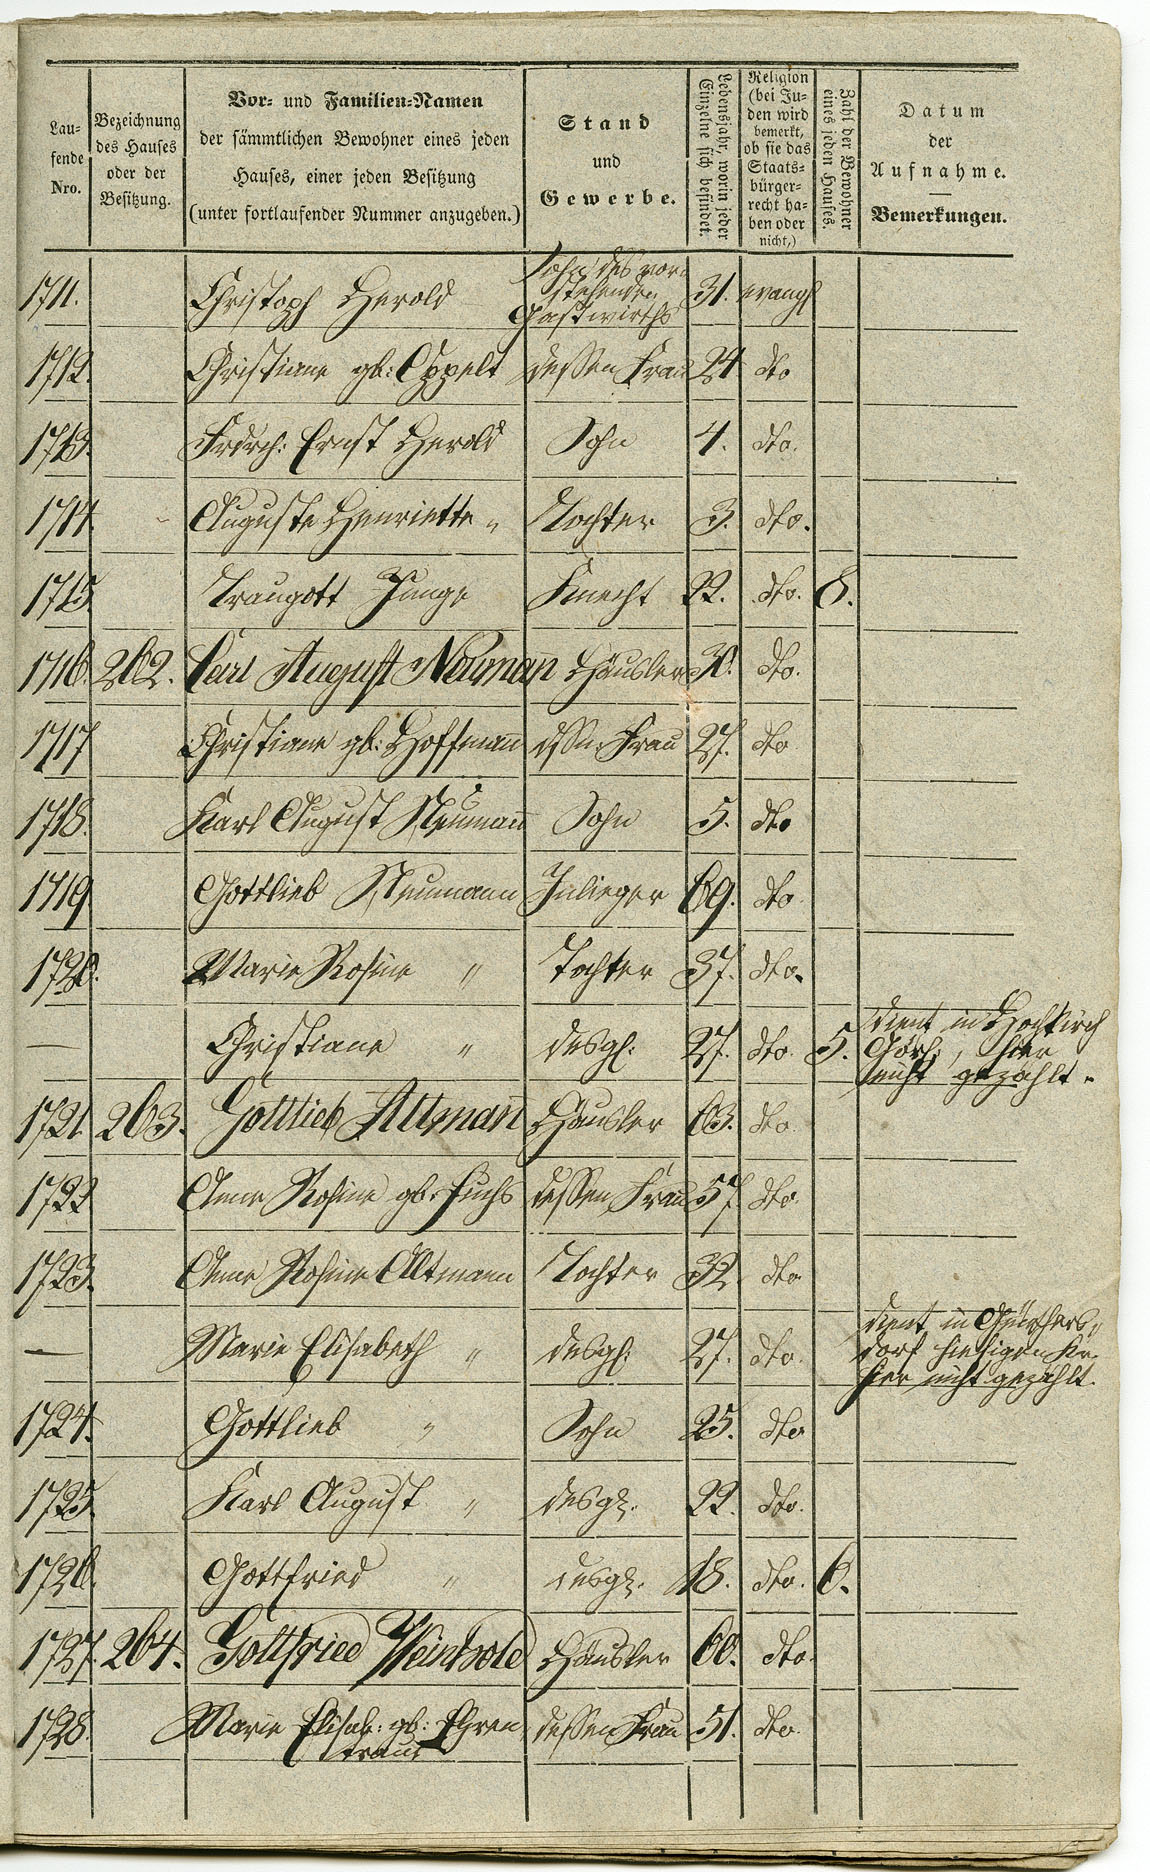 Lau-
fende
Nro.
Bezeichnung
des Hauses
oder der
Besitzung.
Vor- und Familien-Namen
der sämmtlichen Bewohner eines jeden
Hauses, einer jeden Besitzung
(unter fortlaufender Nummer anzugeben.)
Stand
und
Gewerbe.
Lebensjahr, worin jeder
Einzelne sich befindet.
Religion
(bei Ju-
den wird
bemerkt,
ob sie das
Staats-
bürger-
recht ha-
ben oder
nicht,)
Zahl der Bewohner
eines jeden Hauses.
Datum
der
Aufnahme.
Bemerkungen.
Sohn des vor-
stehenden
1711. Christoph Herold Gastwirths 31. evangl
1712. Christiane gb: Oppelt dessen Frau 24 dto
1713. Frdrch: Ernst Herold Sohn 4. dto.
1714. Auguste Henriette " Tochter 3. dto.
1715. Traugott Junge Knecht 22. dto. 8.
1716. 262. Carl August Neuman̄ Häusler 30. dto.
1717 Christiane gb: Hoffman̄ dssn Frau 27. dto
1718. Karl August Neuman̄ Sohn 5. dto
1719 Gottlieb Neumann Inlieger 69. dto
1720. Marie Rosine " Tochter 37. dto.
— Christiane " desgl: 27. dto. 5. dient in Hochkirch
Görl:, hier
nicht gezählt.
1721. 263. Gottlieb Altman̄ Häusler 63. dto.
1722 Anne Rosine gb. Fuchs dessen Frau 57 dto
1723. Anne Rosine Altmann Tochter 32 dto
— Marie Elisabeth " desgl: 27. dto. dient in Günthers-
dorf hiesigen Kr.
hier nicht gezählt.
1724. Gottlieb " Sohn 25. dto
1725. Karl August " desgl. 22. dto.
1726. Gottfried " desgl. 18. dto. 6.
1727. 264. Gottfried Weinhold Häusler 60. dto.
1728. Marie Elisab: gb: Ehren- dessen Frau 51. dto
traut